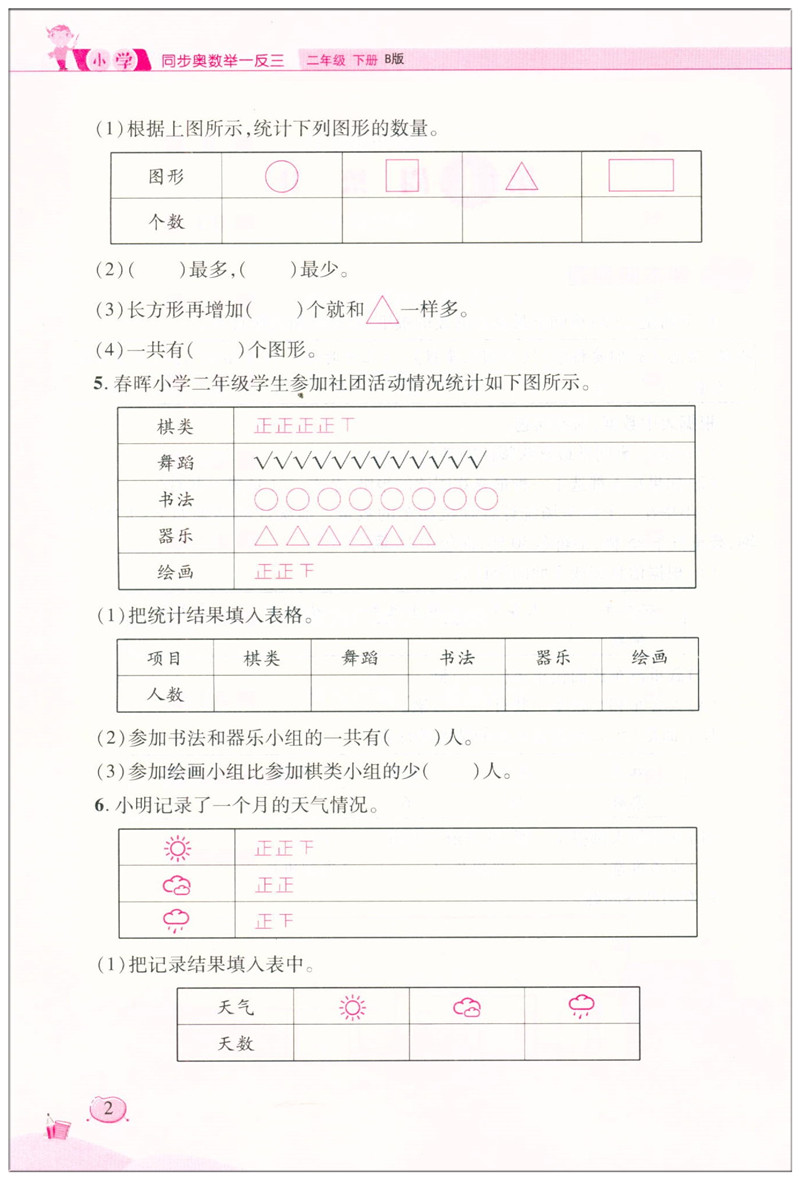 小学 同步奥数举一反三 二年级 下册 B版
(1)根据上图所示,统计下列图形的数量。
图形 ○ □ △ ▭
个数
(2)(  )最多,(  )最少。
(3)长方形再增加(  )个就和△一样多。
(4)一共有(  )个图形。
5. 春晖小学二年级学生参加社团活动情况统计如下图所示。
棋类 正正正正丅
舞蹈 √√√√√√√√√√√√
书法 ○○○○○○○○
器乐 △△△△△△
绘画 正正下
(1)把统计结果填入表格。
项目 棋类 舞蹈 书法 器乐 绘画
人数
(2)参加书法和器乐小组的一共有(  )人。
(3)参加绘画小组比参加棋类小组的少(  )人。
6. 小明记录了一个月的天气情况。
正正下
正正
正下
(1)把记录结果填入表中。
天气
天数
2